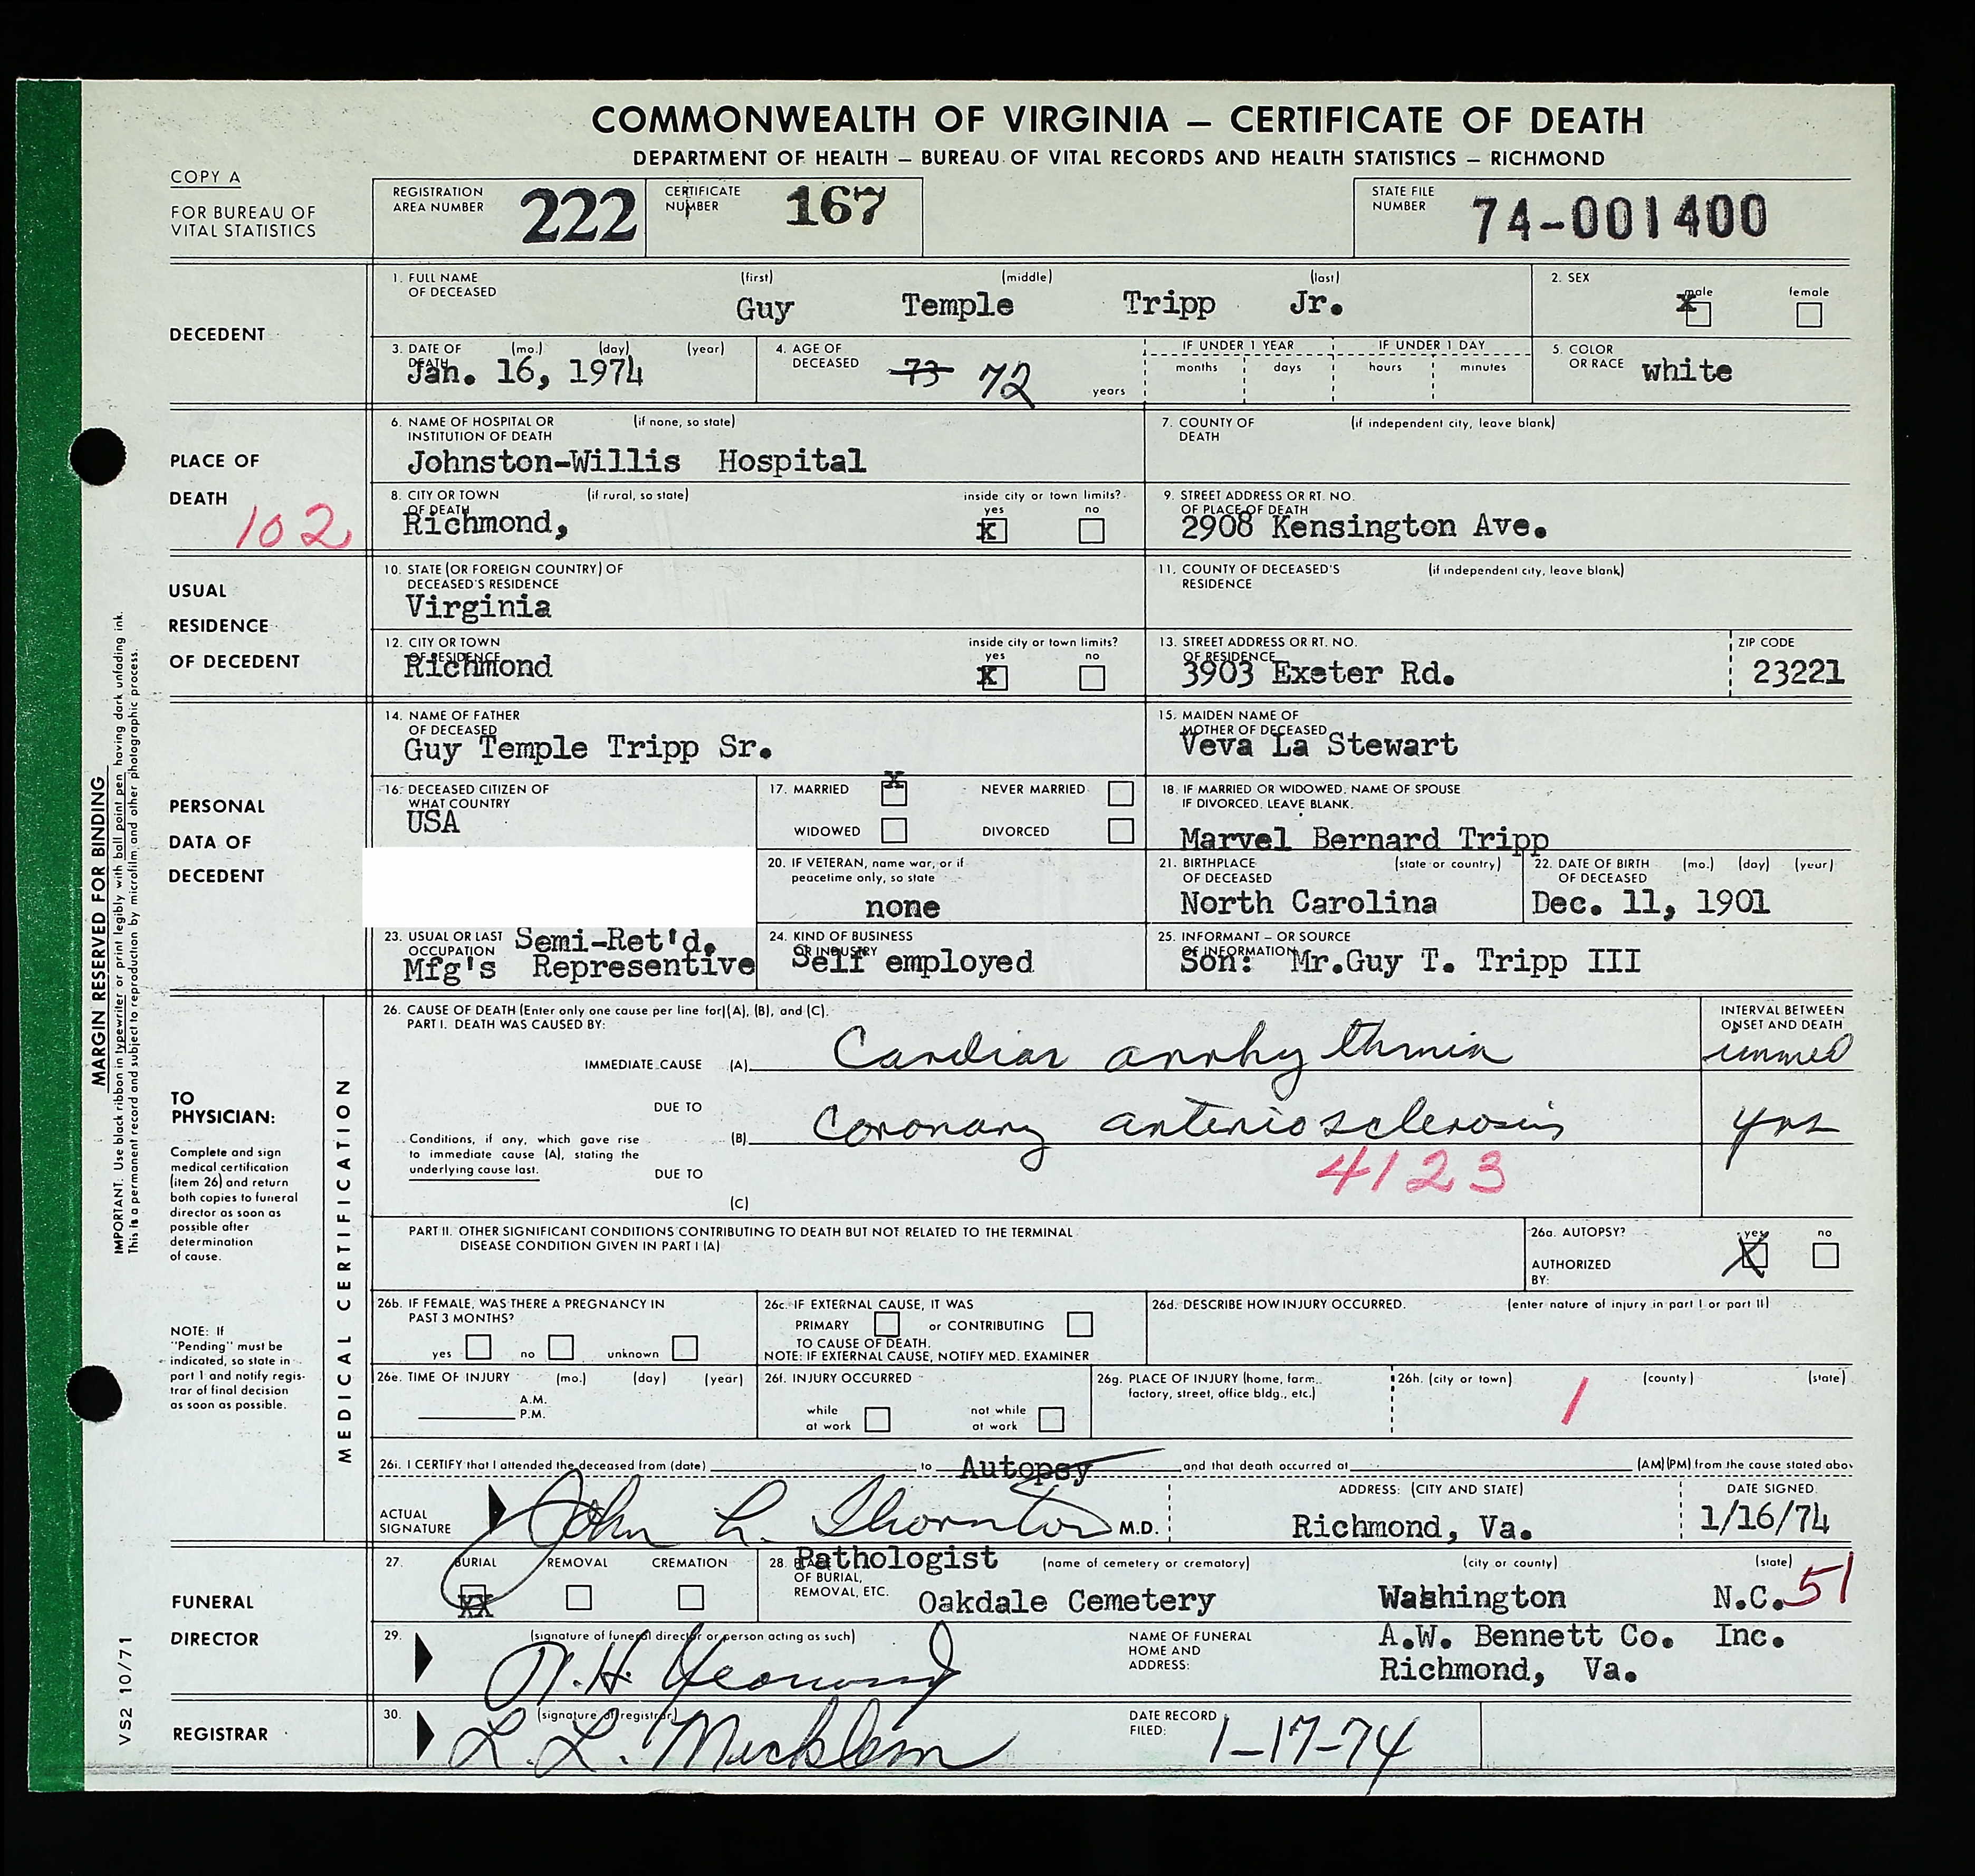 COMMONWEALTH OF VIRGINIA — CERTIFICATE OF DEATH
DEPARTMENT OF HEALTH — BUREAU OF VITAL RECORDS AND HEALTH STATISTICS — RICHMOND
COPY A
FOR BUREAU OF
VITAL STATISTICS
REGISTRATION
AREA NUMBER 222
CERTIFICATE
NUMBER 167
STATE FILE
NUMBER 74-001400
DECEDENT
1. FULL NAME
OF DECEASED
(first) (middle) (last)
Guy Temple Tripp Jr.
2. SEX
male female
X
3. DATE OF
DEATH
(mo.) (day) (year)
Jan. 16, 1974
4. AGE OF
DECEASED
73 72 years
IF UNDER 1 YEAR IF UNDER 1 DAY
months days hours minutes
5. COLOR
OR RACE white
PLACE OF
DEATH
102
6. NAME OF HOSPITAL OR (if none, so state)
INSTITUTION OF DEATH
Johnston-Willis Hospital
7. COUNTY OF (if independent city, leave blank)
DEATH
8. CITY OR TOWN (if rural, so state)
OF DEATH
Richmond,
inside city or town limits?
yes no
X
9. STREET ADDRESS OR RT. NO.
OF PLACE OF DEATH
2908 Kensington Ave.
USUAL
RESIDENCE
OF DECEDENT
10. STATE (OR FOREIGN COUNTRY) OF
DECEASED'S RESIDENCE
Virginia
11. COUNTY OF DECEASED'S (if independent city, leave blank)
RESIDENCE
12. CITY OR TOWN
OF RESIDENCE
Richmond
inside city or town limits?
yes no
X
13. STREET ADDRESS OR RT. NO.
OF RESIDENCE
3903 Exeter Rd.
ZIP CODE
23221
PERSONAL
DATA OF
DECEDENT
14. NAME OF FATHER
OF DECEASED
Guy Temple Tripp Sr.
15. MAIDEN NAME OF
MOTHER OF DECEASED
Veva La Stewart
16. DECEASED CITIZEN OF
WHAT COUNTRY
USA
17. MARRIED X NEVER MARRIED
WIDOWED DIVORCED
18. IF MARRIED OR WIDOWED, NAME OF SPOUSE
IF DIVORCED, LEAVE BLANK.
Marvel Bernard Tripp
20. IF VETERAN, name war, or if
peacetime only, so state
none
21. BIRTHPLACE (state or country)
OF DECEASED
North Carolina
22. DATE OF BIRTH (mo.) (day) (year)
OF DECEASED
Dec. 11, 1901
23. USUAL OR LAST
OCCUPATION
Semi-Ret'd.
Mfg's Representive
24. KIND OF BUSINESS
OR INDUSTRY
Self employed
25. INFORMANT — OR SOURCE
OF INFORMATION
Son: Mr.Guy T. Tripp III
MARGIN RESERVED FOR BINDING
IMPORTANT. Use black ribbon in typewriter or print legibly with ball point pen having dark unfading ink.
This is a permanent record and subject to reproduction by microfilm and other photographic process.
TO
PHYSICIAN:
Complete and sign
medical certification
(item 26) and return
both copies to funeral
director as soon as
possible after
determination
of cause.
NOTE: If
"Pending" must be
indicated, so state in
part 1 and notify regis-
trar of final decision
as soon as possible.
MEDICAL CERTIFICATION
26. CAUSE OF DEATH (Enter only one cause per line for (A), (B), and (C).
PART I. DEATH WAS CAUSED BY:
INTERVAL BETWEEN
ONSET AND DEATH
IMMEDIATE CAUSE (A) Cardiac arrhythmia immed
DUE TO
(B) Coronary arteriosclerosis yrs
Conditions, if any, which gave rise
to immediate cause (A), stating the
underlying cause last.
DUE TO
4123
(C)
PART II. OTHER SIGNIFICANT CONDITIONS CONTRIBUTING TO DEATH BUT NOT RELATED TO THE TERMINAL
DISEASE CONDITION GIVEN IN PART I (A)
26a. AUTOPSY? yes no
X
AUTHORIZED
BY:
26b. IF FEMALE, WAS THERE A PREGNANCY IN
PAST 3 MONTHS?
yes no unknown
26c. IF EXTERNAL CAUSE, IT WAS
PRIMARY or CONTRIBUTING
TO CAUSE OF DEATH.
NOTE: IF EXTERNAL CAUSE, NOTIFY MED. EXAMINER
26d. DESCRIBE HOW INJURY OCCURRED. (enter nature of injury in part I or part II)
26e. TIME OF INJURY (mo.) (day) (year)
A.M.
P.M.
26f. INJURY OCCURRED
while
at work
not while
at work
26g. PLACE OF INJURY (home, farm,
factory, street, office bldg., etc.)
26h. (city or town) (county) (state)
1
26i. I CERTIFY that I attended the deceased from (date) to Autopsy and that death occurred at (AM)(PM) from the cause stated abov
ACTUAL
SIGNATURE John L. Thornton M.D.
Pathologist
ADDRESS: (CITY AND STATE)
Richmond, Va.
DATE SIGNED.
1/16/74
FUNERAL
DIRECTOR
27. BURIAL REMOVAL CREMATION
XX
28. PLACE
OF BURIAL,
REMOVAL, ETC.
(name of cemetery or crematory) (city or county) (state)
Oakdale Cemetery Washington N.C. 51
29. (signature of funeral director or person acting as such)
NAME OF FUNERAL
HOME AND
ADDRESS:
A.W. Bennett Co. Inc.
Richmond, Va.
REGISTRAR
30. (signature of registrar)
L. L. Micklem
DATE RECORD
FILED: 1-17-74
VS2 10/71